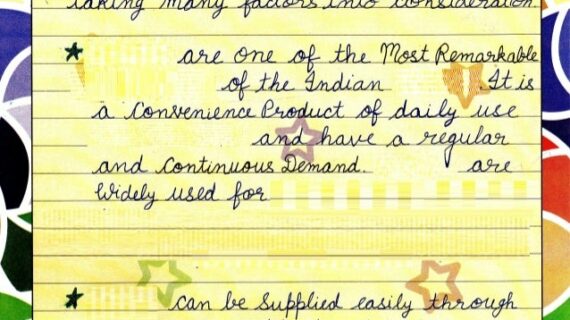 taking many factors into consideration.
★ are one of the Most Remarkable
of the Indian . It is
a Convenience Product of daily use
and have a regular
and Continuous Demand. are
Widely used for
★ can be Supplied easily through